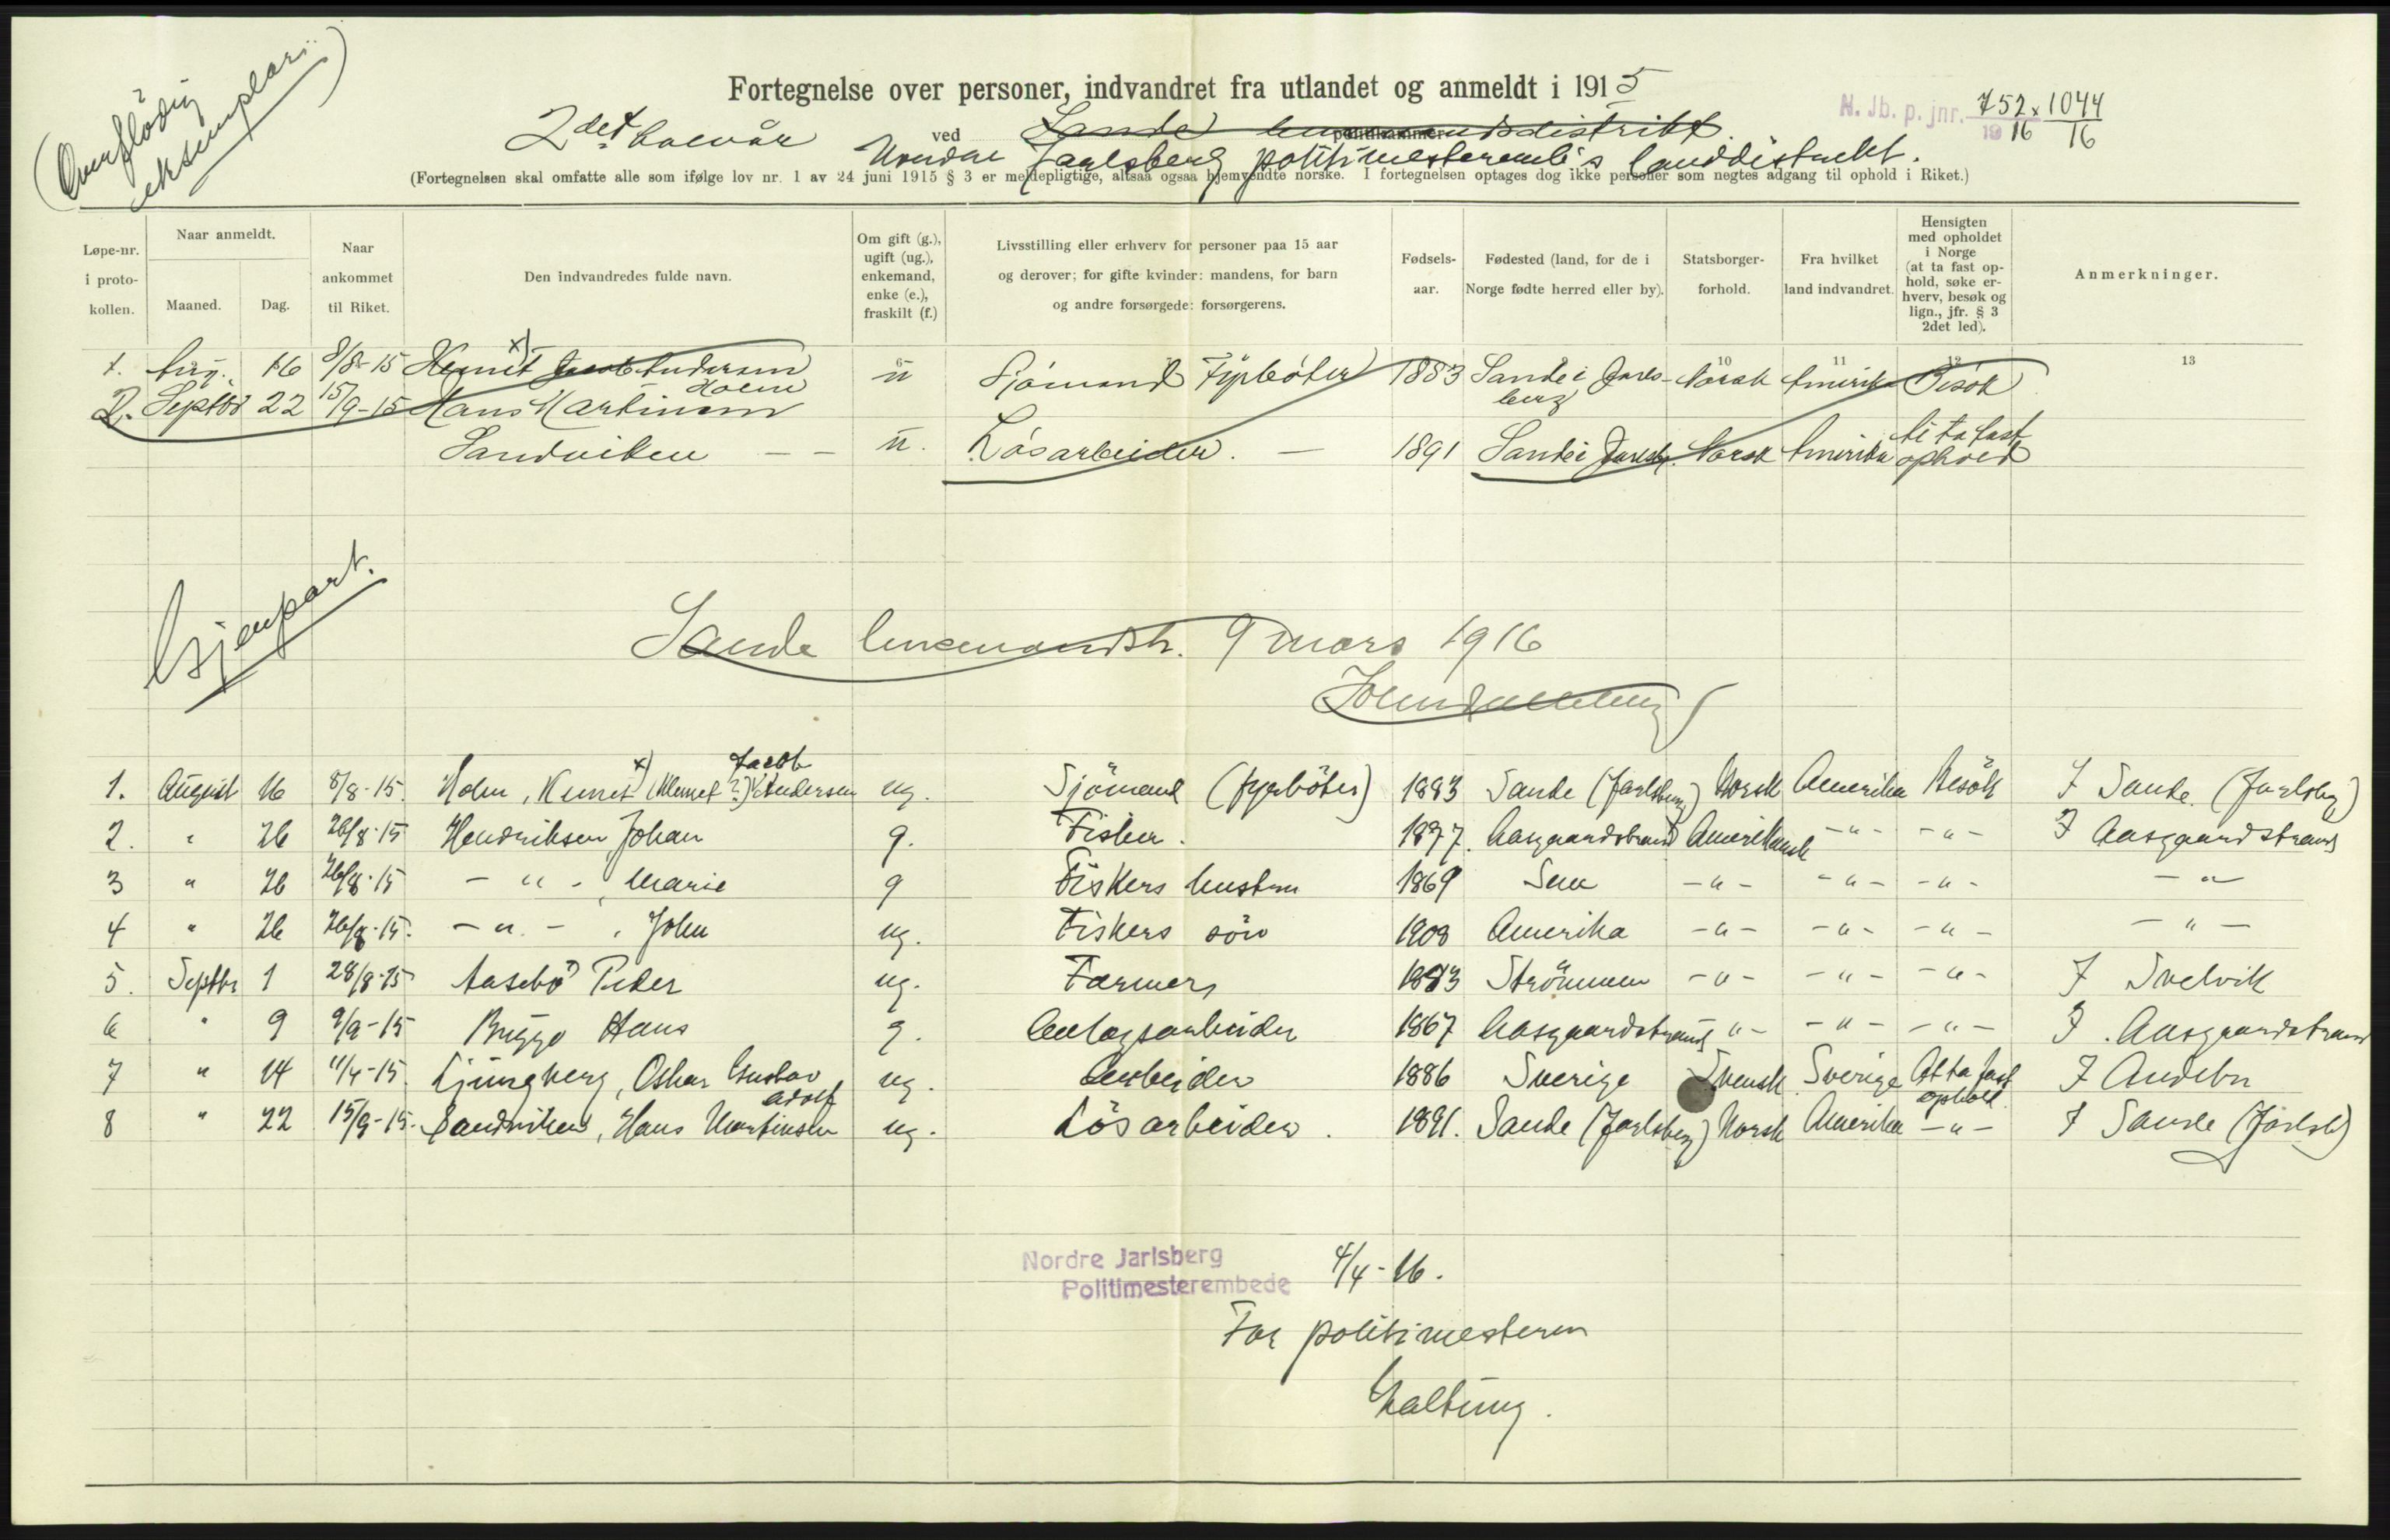 (Overflødig
eksemplar)
Fortegnelse over personer, indvandret fra utlandet og anmeldt i 1915
2det halvår ved Sande lensmandsdistrikt
politikammer
Nordre Jarlsberg politimesterembedes landdistrikt.
N. Jb. p. jnr. 752 x 1044
1916 16
(Fortegnelsen skal omfatte alle som ifølge lov nr. 1 av 24 juni 1915 § 3 er meldepligtige, altsaa ogsaa hjemvendte norske. I fortegnelsen optages dog ikke personer som negtes adgang til ophold i Riket.)
Løpe-nr. i proto-kollen. Naar anmeldt. Maaned. Dag. Naar ankommet til Riket. Den indvandredes fulde navn. Om gift (g.), ugift (ug.), enkemand, enke (e.), fraskilt (f.) Livsstilling eller erhverv for personer paa 15 aar og derover; for gifte kvinder: mandens, for barn og andre forsørgede: forsørgerens. Fødsels-aar. Fødested (land, for de i Norge fødte herred eller by). Statsborger-forhold. Fra hvilket land indvandret. Hensigten med opholdet i Norge (at ta fast op-hold, søke er-hverv, besøk og lign., jfr. § 3 2det led). Anmerkninger.
6 10 11 12 13
1. Aug. 16 8/8-15 x) Jacob Andersen Holm u Sjömand Fyrböter 1883 Sande i Jarlsberg Norsk Amerika Besök
2. Septbr 22 15/9-15 Hans Martinsen
Sandviken – – u. Lösarbeider. – 1891 Sande i Jarlsb. Norsk Amerika At ta fast ophold
Gjenpart.
Sande lensmandsk. 9 mars 1916
1. August 16 8/8-15. Holm, x) (Klemet?) Jacob Andersen ug. Sjömand (fyrböter) 1883 Sande (Jarlsberg) Norsk Amerika Besök I Sande (Jarlsbg)
2. " 26 26/8-15 Hendriksen Johan g. Fisker. Aasgaardstrand Amerikansk -"- -"- I Aasgaardstrand
3 " 26 26/8-15 -"- , Marie g Fiskers hustru 1869 Sem -"- -"- -"- -"-
4 " 26 26/8-15. -"- , John ug. Fiskers sön 1908 Amerika -"- -"- -"- -"-
5. Septbr 1 28/8-15 Aasebö Peder ug. Farmer 1883 Strömmen -"- -"- -"- I Svelvik
6 " 9 9/9-15 Brygge Hans g. Anlagsarbeider 1867 Aasgaardstrand -"- -"- -"- I Aasgaardstrand
7 " 14 11/4-15. Ljungberg, Oskar Gustav Adolf ug. Arbeider 1886 Sverige Svensk Sverige At ta fast ophold. I Andebu
8 " 22 15/9-15. Sandviken, Hans Martinsen ug. Lösarbeider. 1891. Sande (Jarlsberg) Norsk Amerika -"- I Sande (Jarlsb)
Nordre Jarlsberg
Politimesterembede
4/4-16.
For politimesteren